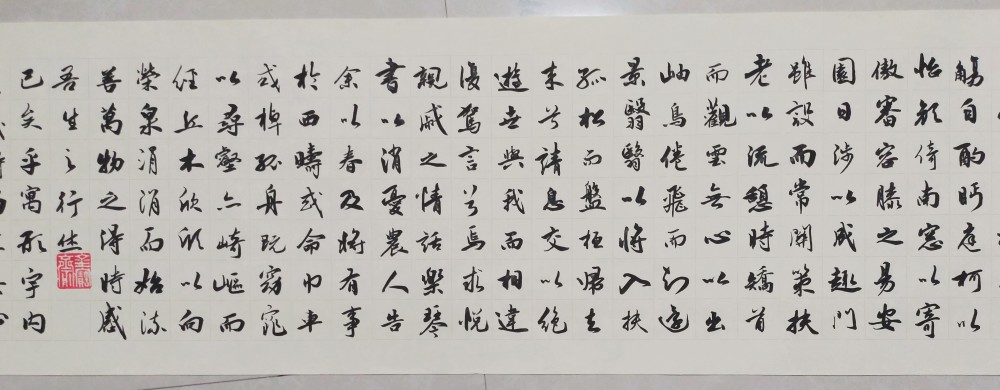 觴自酌眄庭柯以
怡顏倚南窓以寄
傲審容膝之易安
園日涉以成趣門
雖設而常關策扶
老以流憩時矯首
而觀雲无心以出
岫鳥倦飛而知還
景翳翳以將入撫
孤松而盤桓歸去
来兮請息交以絕
遊世與我而相違
復駕言兮焉求悅
親戚之情話樂琴
書以消憂農人告
余以春及將有事
於西疇或命巾車
或棹孤舟既窈窕
以尋壑亦崎嶇而
經丘木欣欣以向
榮泉涓涓而始流
善萬物之得時感
吾生之行休
已矣乎寓形宇内